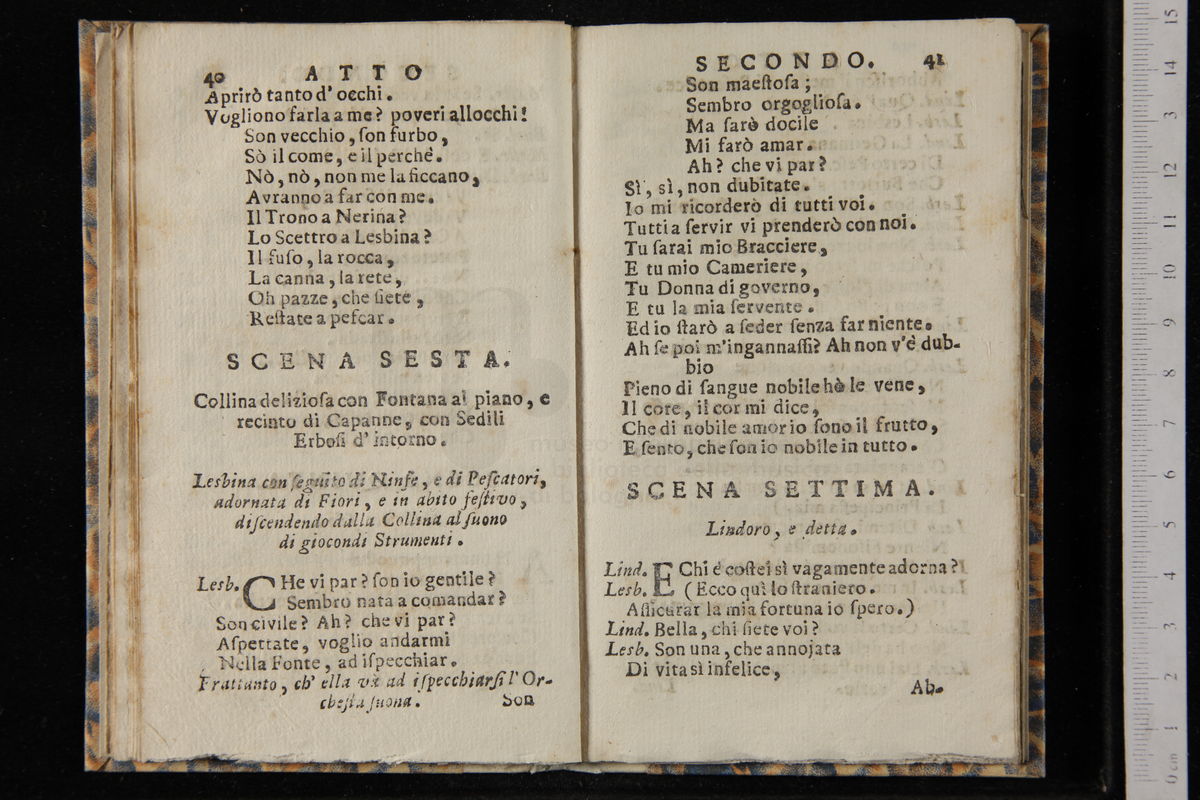 40 ATTO
Aprirò tanto d' occhi.
Vogliono farla a me? poveri allocchi!
Son vecchio, ſon furbo,
Sò il come, e il perchè.
Nò, nò, non me la ficcano,
Avranno a far con me.
Il Trono a Nerina?
Lo Scettro a Lesbina?
Il fuſo, la rocca,
La canna, la rete,
Oh pazze, che ſiete,
Reſtate a peſcar.
SCENA SESTA.
Collina delizioſa con Fontana al piano, e
recinto di Capanne, con Sedili
Erboſi d' intorno.
Lesbina con ſeguito di Ninfe, e di Peſcatori,
adornata di Fiori, e in abito feſtivo,
diſcendendo dalla Collina al ſuono
di giocondi Strumenti.
Lesb. CHe vi par? ſon io gentile?
Sembro nata a comandar?
Son civile? Ah? che vi par?
Aſpettate, voglio andarmi
Nella Fonte, ad iſpecchiar.
Frattanto, ch' ella và ad iſpecchiarſi l' Or-
cheſta ſuona. Son
SECONDO. 41
Son maeſtoſa;
Sembro orgoglioſa.
Ma ſarò docile
Mi farò amar.
Ah? che vi par?
Sì, sì, non dubitate.
Io mi ricorderò di tutti voi.
Tutti a ſervir vi prenderò con noi.
Tu ſarai mio Bracciere,
E tu mio Cameriere,
Tu Donna di governo,
E tu la mia ſervente.
Ed io ſtarò a ſeder ſenza far niente.
Ah ſe poi m'ingannaſſi? Ah non v'è dub-
bio
Pieno di ſangue nobile hò le vene,
Il core, il cor mi dice,
Che di nobile amor io ſono il frutto,
E ſento, che ſon io nobile in tutto.
SCENA SETTIMA.
Lindoro, e detta.
Lind. E Chi é coſtei sì vagamente adorna?
Lesb. (Ecco quì lo ſtraniero.
Aſſicurar la mia fortuna io ſpero.)
Lind. Bella, chi ſiete voi?
Lesb. Son una, che annojata
Di vita sì infelice,
Ab-